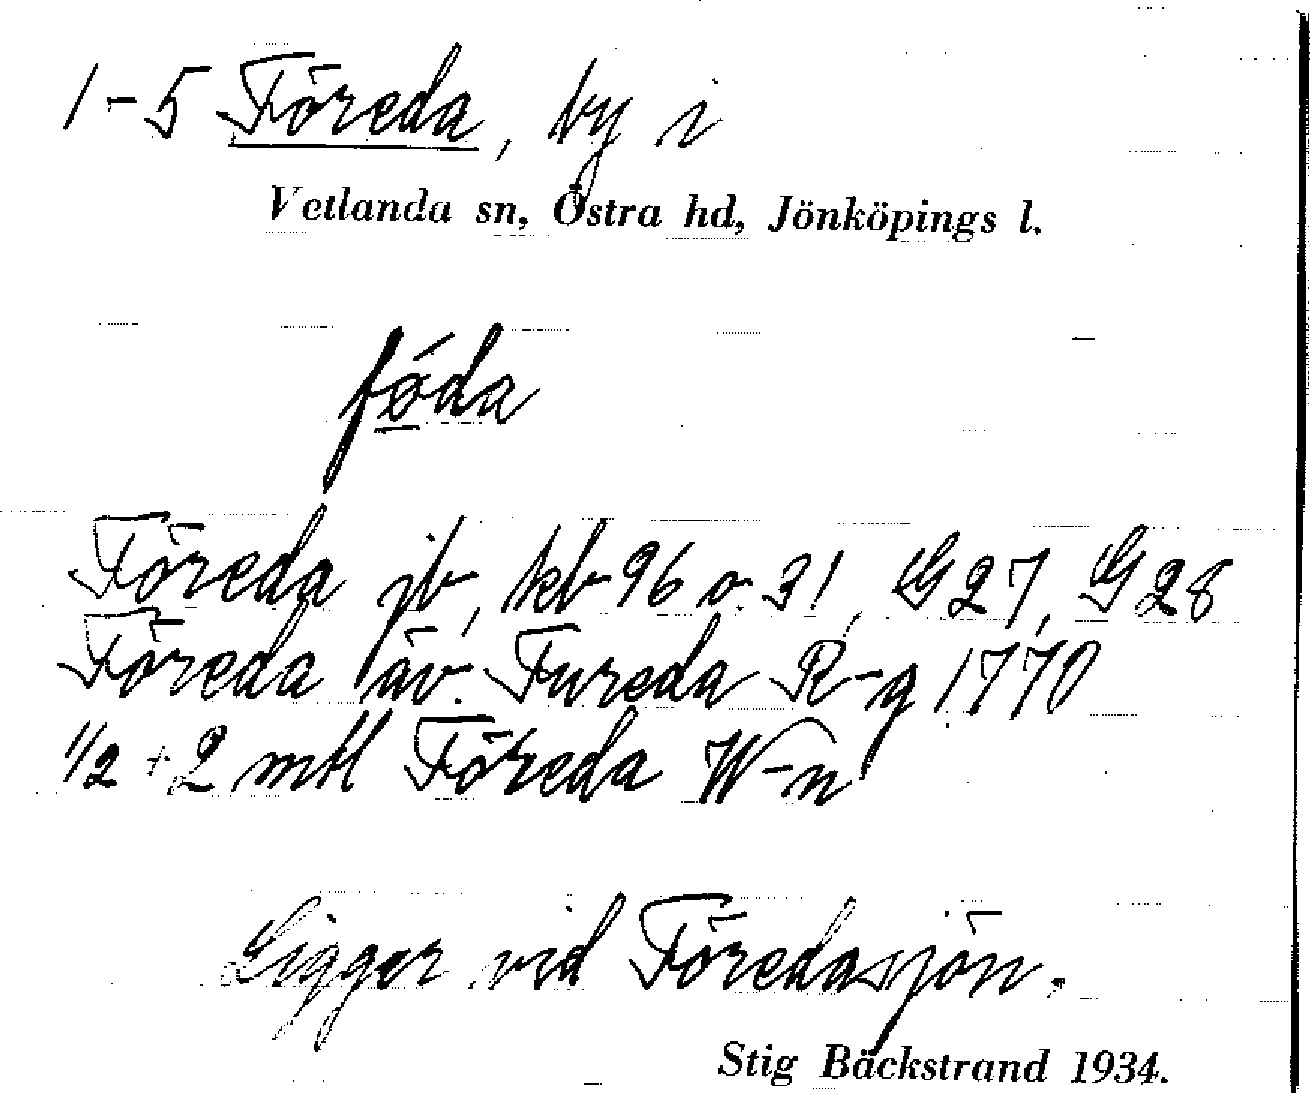 1-5 Föreda, by i
Vetlanda sn, Östra hd, Jönköpings l.
fǿda
Föreda jb, kb 96 o. 31, G27, G28
Föreda äv. Fureda R-g 1770
1/2 + 2 mtl Föreda W-n
Ligger vid Föredasjön.
Stig Bäckstrand 1934.